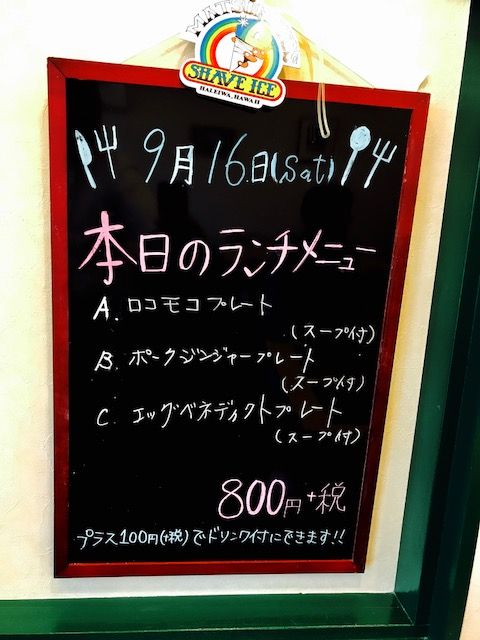 MATSUMOTO
SHAVE ICE
HALEIWA, HAWAII
9月16日(Sat)
本日のランチメニュー
A. ロコモコプレート
(スープ付)
B. ポークジンジャープレート
(スープ付)
C. エッグベネディクトプレート
(スープ付)
800円+税
プラス100円(+税)でドリンク付にできます!!